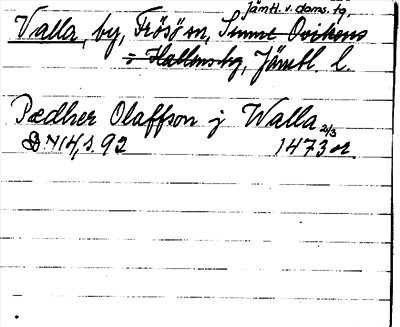 Jämtl. v. doms. tg,
Valla, by, Frösö sn, Sunne Ovikens
÷ Hallens tg, Jämtl. l.
Pædher Olaffson j Walla
DN 14, s. 92 1473 2/3 or.